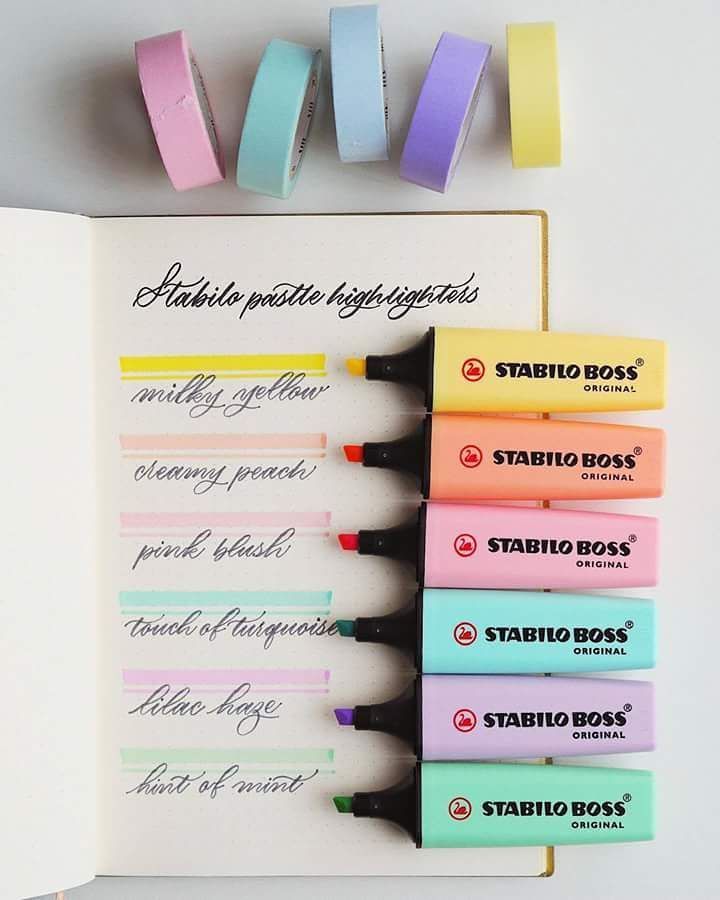 Stabilo pastle highlighters
milky yellow
STABILO BOSS®
ORIGINAL
creamy peach
STABILO BOSS®
ORIGINAL
pink blush
STABILO BOSS®
ORIGINAL
touch of turquoise
STABILO BOSS®
ORIGINAL
lilac haze
STABILO BOSS®
ORIGINAL
hint of mint
STABILO BOSS®
ORIGINAL